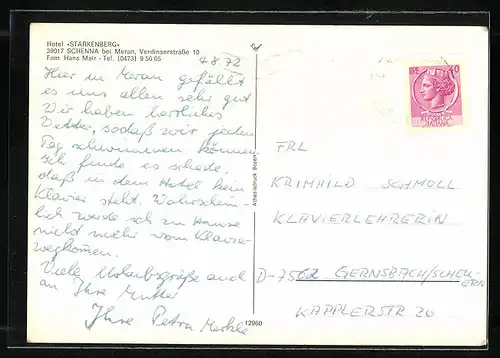 Hotel «STARKENBERG»
39017 SCHENNA bei Meran, Verdinserstraße 10
Fam. Hans Mair - Tel. (0473) 9 56 65
4.8.72
Hier in Meran gefällt
es uns allen sehr gut
Wir haben herrliches
Wetter, sodaß wir jeden
Tag schwimmen können.
Ich finde es schade,
daß in dem Hotel kein
Klavier steht. Wahrschein-
lich werde ich zu Hause
nicht mehr vom Klavier
wegkommen.
Viele Urlaubsgrüße auch
an Ihre Mutter
Ihre Petra
Athesiadruck Bozen
12960
LIRE 40
FRL
KRIMHILD SCHMOLL
KLAVIERLEHRERIN
D-7562 GERNSBACH/SCHEU-
ERN
KAPPLERSTR 20